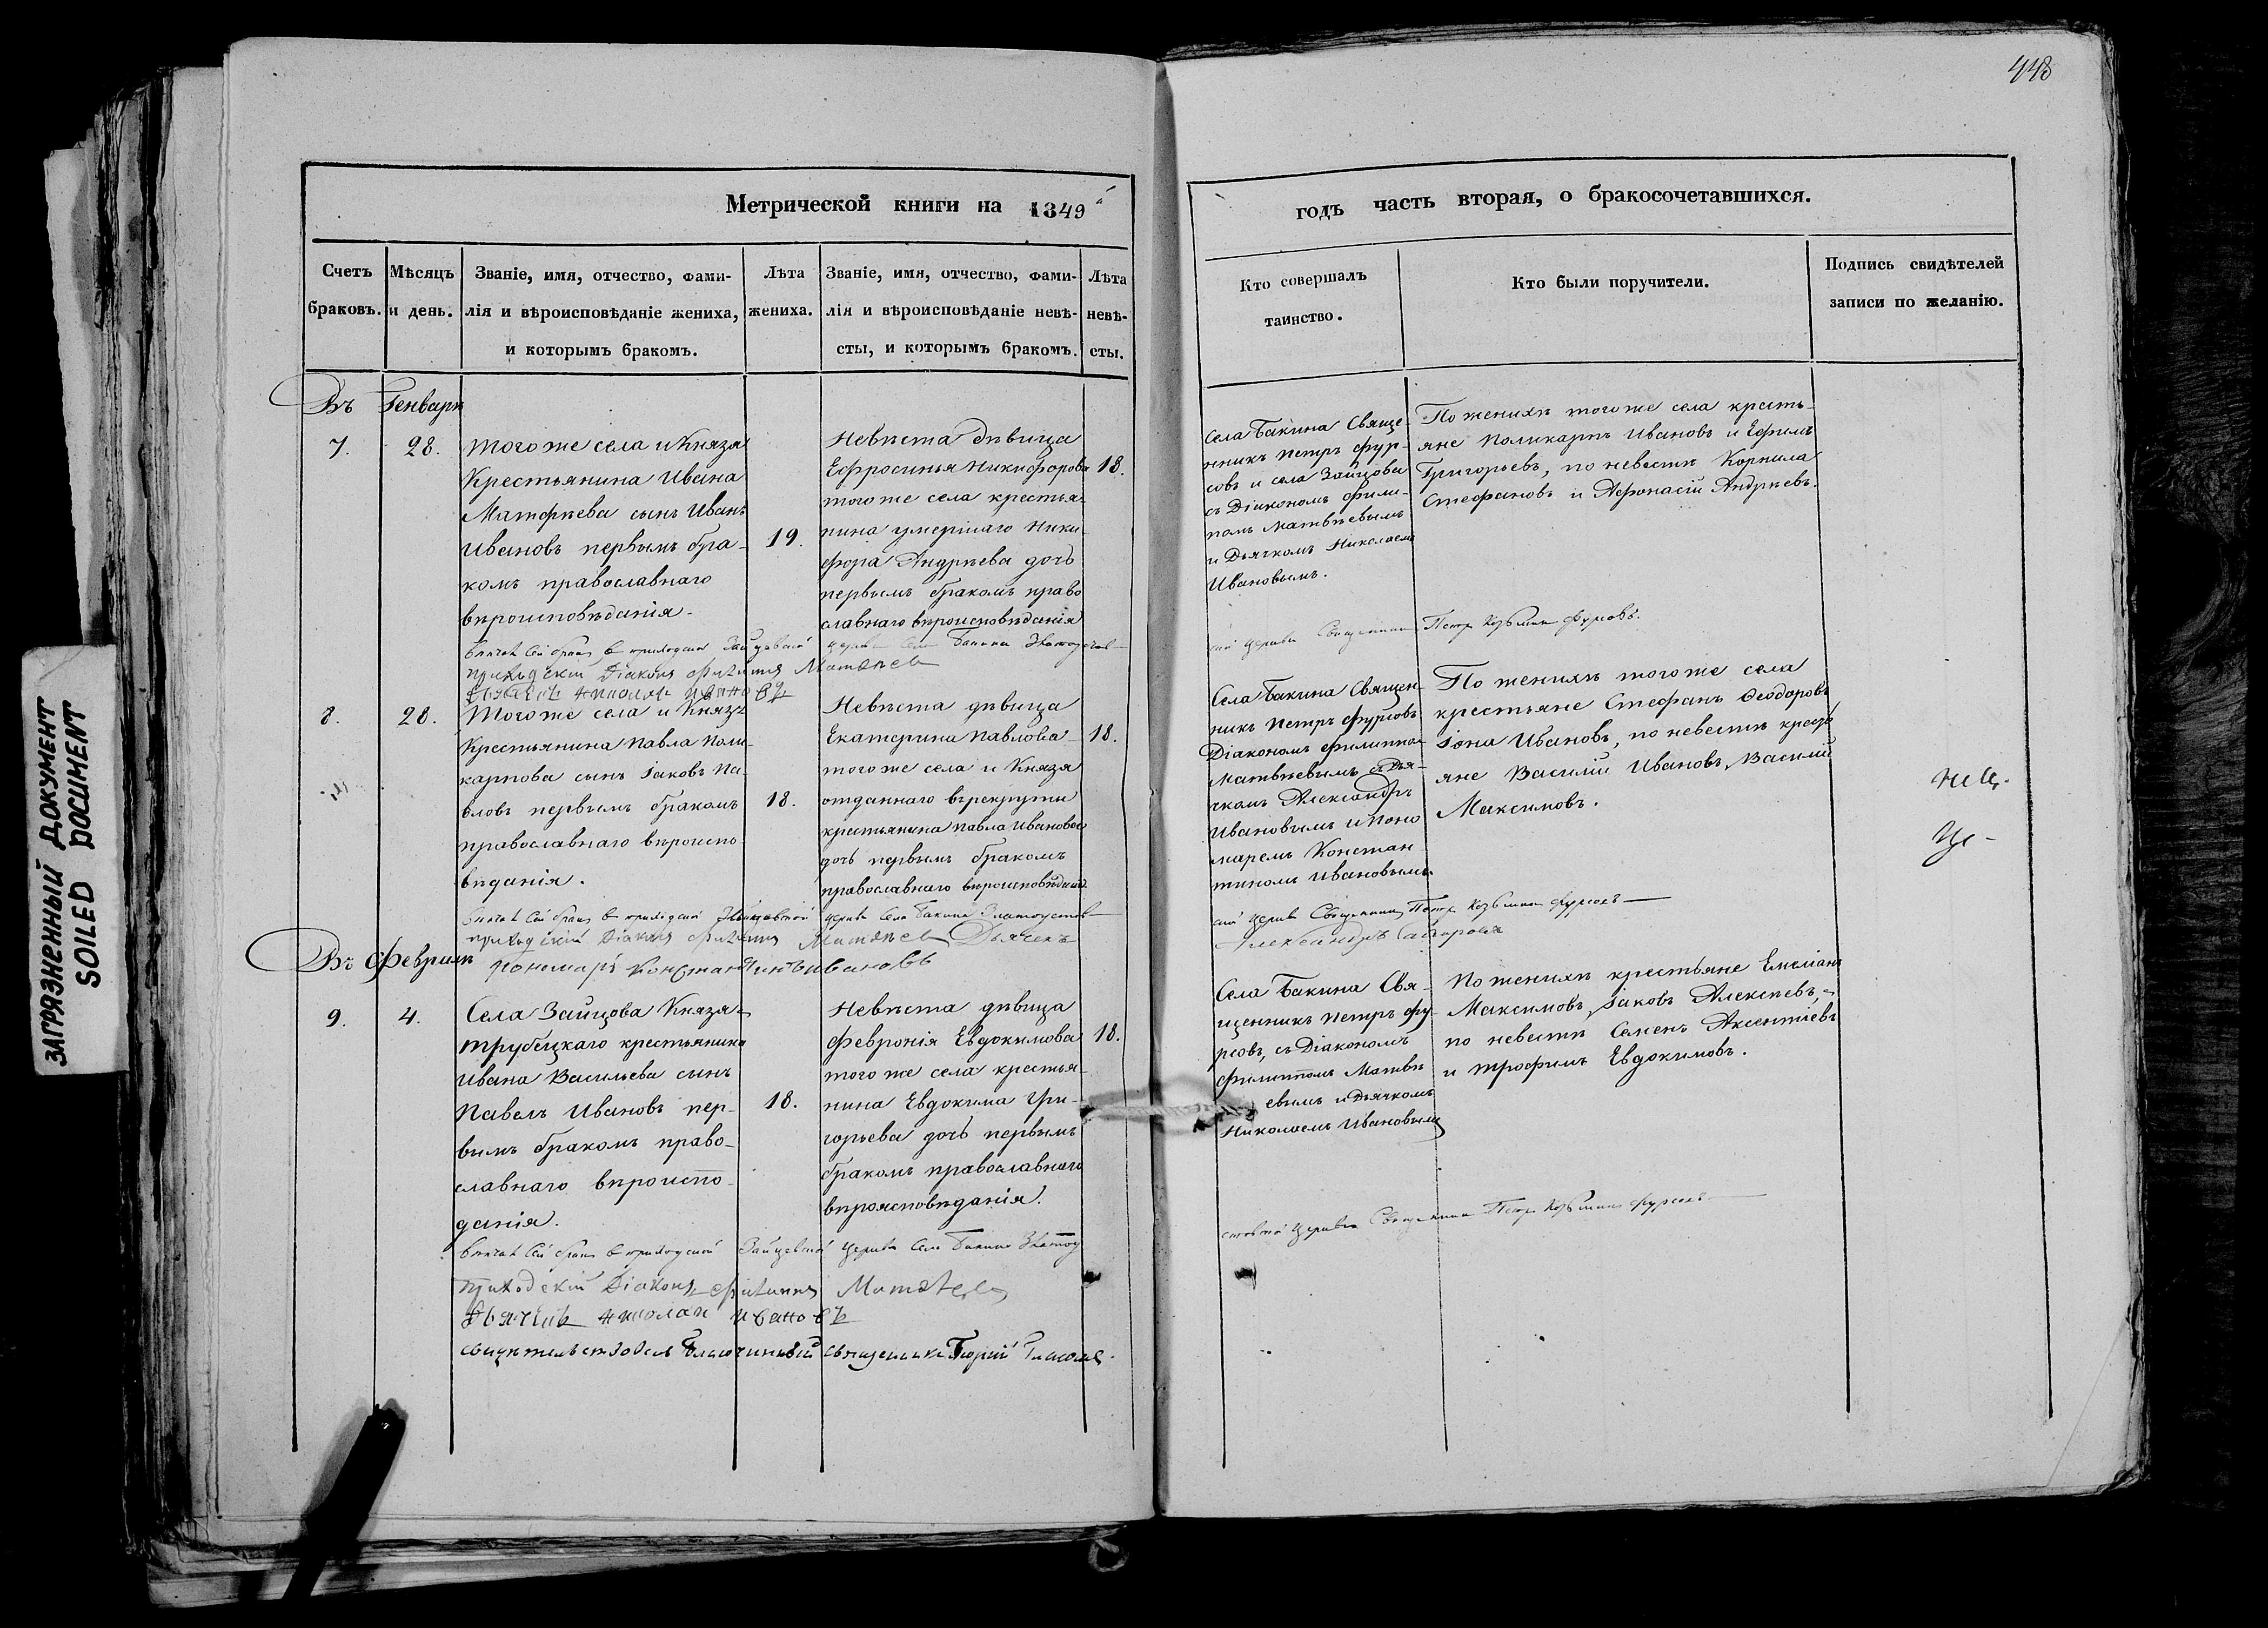 448
Метрической книги на 1849
годъ часть вторая, о бракосочетавшихся.
Счетъ браковъ.
Мѣсяцъ и день.
Званіе, имя, отчество, фами-
лія и вѣроисповѣданіе жениха,
и которымъ бракомъ.
Лѣта жениха.
Званіе, имя, отчество, фами-
лія и вѣроисповѣданіе невѣ-
сты, и которымъ бракомъ.
Лѣта невѣ-
сты.
Кто совершалъ
таинство.
Кто были поручители.
Подпись свидѣтелей
записи по желанію.
Въ Генварѣ
7.
28.
Того же села и Князя
Крестьянина Ивана
Матфѣева сынъ Иванъ
Ивановъ первымъ бра-
комъ православнаго
вѣроисповѣданія.
19.
Невѣста дѣвица
Ефросинья Никифорова
того же села крестья-
нина умершаго Ники-
фора Андрѣева дочь
первымъ бракомъ право
славнаго вѣроисповѣданія
18.
Села Бакина Свяще-
нникъ Петръ Фур-
совъ и села Зайцова
съ Діакономъ Фили-
помъ Матвѣевымъ
и Дьячкомъ Николаемъ
Ивановымъ.
По женихѣ того же села кресть-
яне Поликарпъ Ивановъ и Ефимъ
Григорьевъ, по невестѣ Корнила
Стефановъ и Афонасій Андрѣевъ.
приходскій Діаконъ Филиппъ Матвѣевъ
Дьячекъ Николай Ивановъ
8.
28.
Того же села и Князя
Крестьянина Павла Поли-
карпова сынъ Іаковъ Па-
вловъ первымъ бракомъ
православнаго вѣроиспо-
вѣданія.
18.
Невѣста дѣвица
Екатерина Павлова
того же села и Князя
отданнаго въ рекруты
крестьянина Павла Иванова
дочь первымъ бракомъ
православнаго вѣроисповѣданія
18.
Села Бакина Священ-
никъ Петръ Фурсовъ
Діакономъ Филиппомъ
Матвѣевымъ и Дья-
чкомъ Александръ
Ивановымъ и Поно
маремъ Констан
тиномъ Ивановымъ.
По женихѣ того же села
крестьяне Стефанъ Ѳеодоровъ
Іона Ивановъ, по невестѣ кресть
яне Василій Ивановъ, Василій
Максимовъ.
приходскій Діаконъ Филиппъ Матвѣевъ Дьячекъ
пономарь Константинъ Ивановъ
Въ Февралѣ
9.
4.
Села Зайцова Князя
Трубецкаго крестьянина
Ивана Васильева сынъ
Павелъ Ивановъ пер-
вымъ бракомъ право-
славнаго вѣроиспо-
данія.
18.
Невѣста дѣвица
Февронія Евдокимова
того же села крестья-
нина Евдокима Гри-
горьева дочь первымъ
бракомъ православнаго
вѣроисповѣданія.
18.
Села Бакина Свя-
щенникъ Петръ Фу-
рсовъ, съ Діакономъ
Филиппомъ Матвѣ
евымъ и Дьячкомъ
Николаемъ Ивановымъ
По женихѣ крестьяне Емеліанъ
Максимовъ, Іаковъ Алексѣевъ,
по невестѣ Семенъ Аксентіевъ
и Трофимъ Евдокимовъ.
приходскій Діаконъ Филиппъ Матвѣевъ
Дьячекъ Николай Ивановъ
свидѣтельствовалъ Благочинный священникъ
ЗАГРЯЗНЕННЫЙ ДОКУМЕНТ
SOILED DOCUMENT